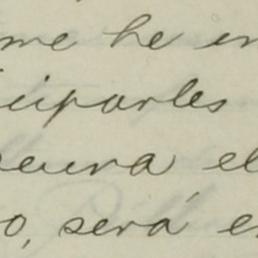 me he en
ciparles
el
o, será e